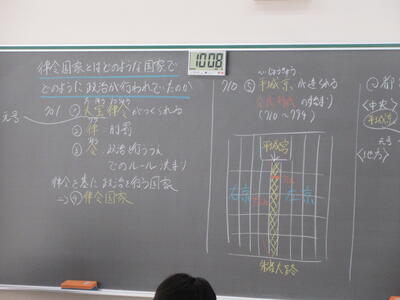 律令国家とはどのような国家で
どのように政治が行われていたのか
10:08
たいほう りつりょう
701 ① 大宝律令がつくられる
元号
② 律:刑罰
③ 令:政治を行ううえ
でのルール(決まり)
律令を基に政治を行う国家
⇒ ④ 律令国家
へいじょうきょう
710 ⑤ 平城京が造られる
奈良時代の始まり
(710~784)
平城宮
右京
左京
朱雀大路
〈中央〉
平城京
元号
〈地方〉